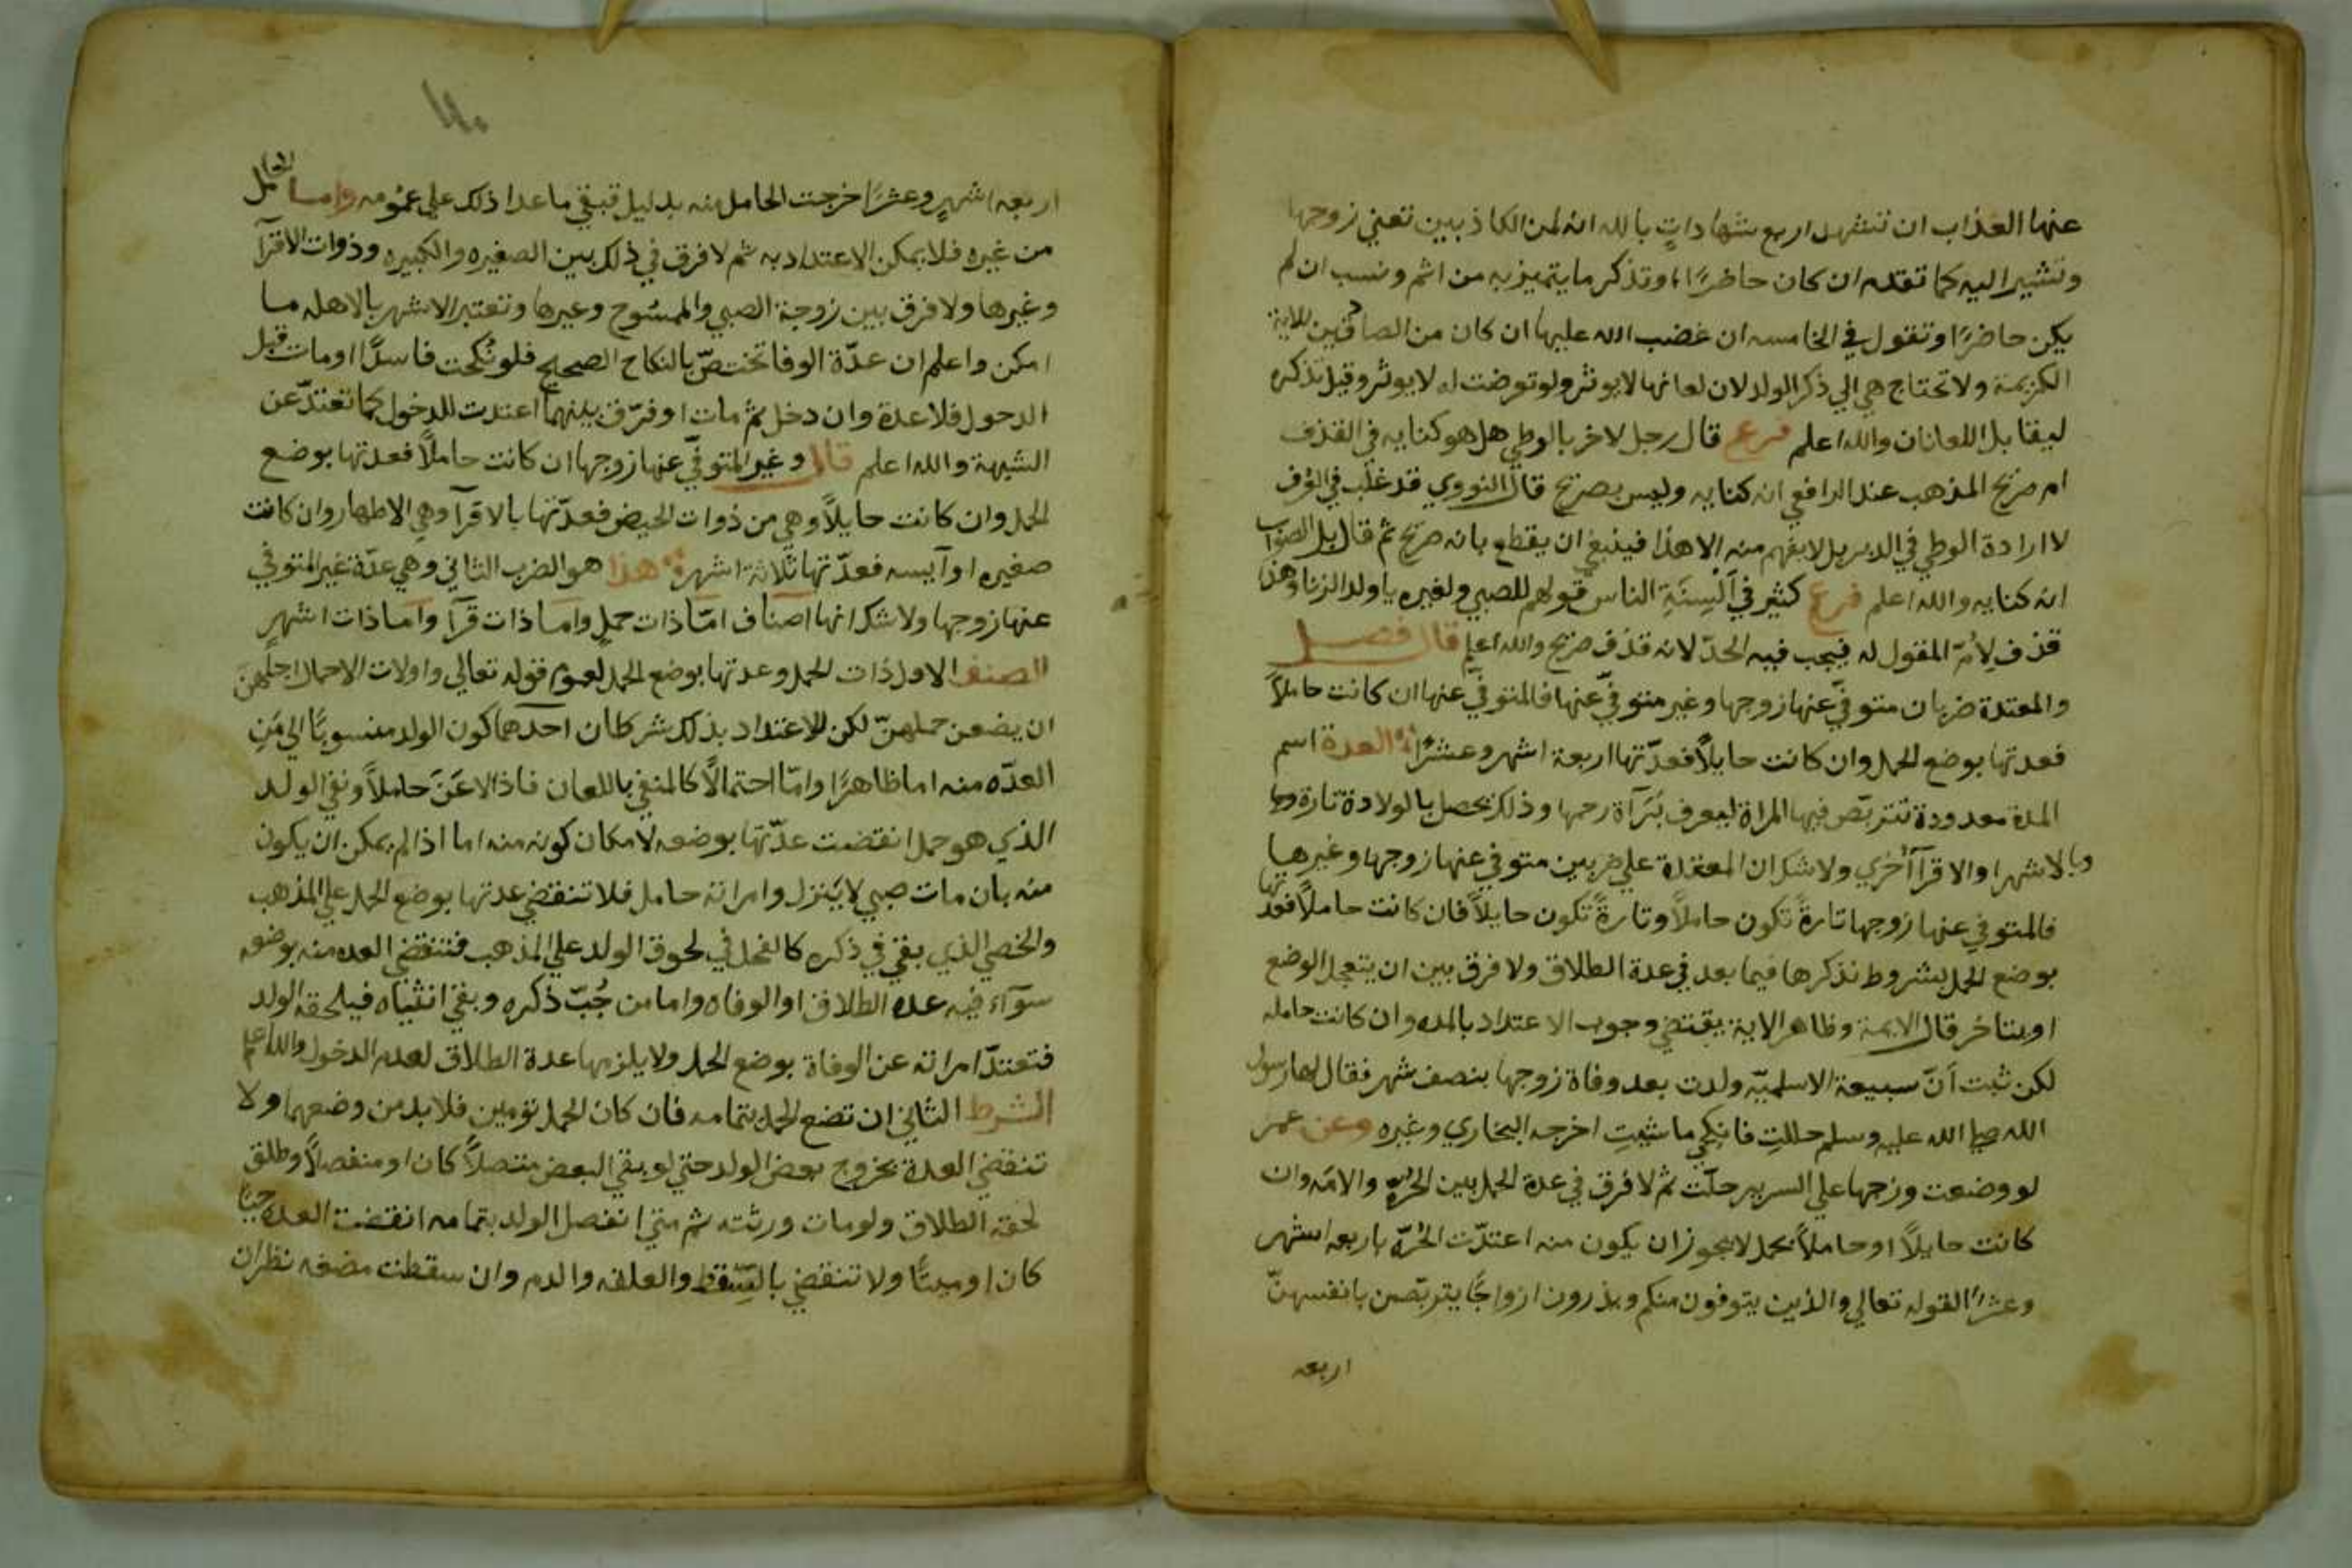 عنها العذاب ان تشهد اربع شهاداتٍ بالله انه لمن الكاذبين تعني زوجها
وتشير اليه كما تقدم ان كان حاضرًا وتذكر ما يتميز به من اسم ونسب ان لم
يكن حاضرًا وتقول في الخامسه ان غضب الله عليها ان كان من الصادقين للاية
الكريمة ولا تحتاج هي الي ذكر الولد لان لعانها لا يوثر ولو تعرضت له لا يوثر وقيل تذكره
ليقابل اللعانان والله اعلم فرع قال رجل لاخر يا لوطي هل هو كنايه في القذف
ام صريح المذهب عند الرافعي انه كنايه وليس بصريح قال النووي قد غلب في العرف
لا ارادة الوطي في الدبر بل لا يفهم منه الا هذا فينبغي ان يقطع بانه صريح ثم قال بل الصواب
انه كنايه والله اعلم فرع كثير في اَلْسِنَةِ الناس قولهم للصبي ولغيره يا ولد الزنا وهذا
قذف لِاُمّ المقول له فيجب فيه الحدّ لانه قذف صريح والله اعلم قال فصل
والمعتدة ضربان متوفيّ عنها زوجها وغير متوفيّ عنها فالمتوفيّ عنها ان كانت حاملًا
فعدتها بوضع الحمل وان كانت حايلًا فعدّتها اربعة اشهر وعشرًا العدة اسم
المدة معدودة تتربّص فيها المراة ليعرف بَرَآة رحمها وذلك يحصل بالولادة تارة
وبالاشهر او الاقرآ أخري ولا شك ان المعتدة علي ضربين متوفي عنها زوجها وغيرها
فالمتوفي عنها زوجها تارةً تكون حاملًا وتارةً تكون حايلًا فان كانت حاملًا فعدتها
بوضع الحمل بشروط نذكرها فيما بعد في عدة الطلاق ولا فرق بين ان يتعجل الوضع
او يتاخر قال الايمة وظاهر الاية يقتضي وجوب الاعتداد بالمده وان كانت حامله
لكن ثبت اَنّ سبيعة الاسلميّه ولدت بعد وفاة زوجها بنصف شهر فقال لها رسول
الله صلي الله عليه وسلم حللتِ فانكحي ما شيتِ اخرجه البخاري وغيره وعن عمر
لو وضعت وزجها علي السرير حلّت ثم لا فرق في عدة الحمل بين الحرّه والامَه وان
كانت حايلًا او حاملًا بحمل لا يجوز ان يكون منه اعتدّت الحُرّه باربعه اشهر
وعشرًا لقوله تعالي والذين يتوفون منكم ويذرون ازواجًا يتربّصن بانفسهنّ
اربعه
اربعه اشهرٍ وعشرًا خرجت الحامل منه بدليل فبقي ما عدا ذلك علي عمُومه واما الحامل
من غيره فلا يمكن الاعتداد به ثم لا فرق في ذلك بين الصغيره والكبيره وذوات الاقرآ
وغيرها ولا فرق بين زوجة الصبي والممسُوح وغيرها وتعتبر الاشهر بالاهله ما
امكن واعلم ان عدّة الوفا تختصّ بالنكاح الصحيح فلو نُكحت فاسدًا او مات قبل
الدحول فلا عدة وان دخل ثم مات او فرّق بينهما اعتدت للدخول كما تعتدّ عن
الشبهة والله اعلم قال وغير المتوفيّ عنها زوجها ان كانت حاملًا فعدتها بوضع
الحمل وان كانت حايلًا وهي من ذوات الحيض فعدّتها بالاقرآ وهي الاطهار وان كانت
صغيره او آيسه فعدّتها ثلاثة اشهر هذا هو الضرب الثاني وهي عدّة غير المتوفي
عنها زوجها ولا شك انها اصناف امّا ذات حملٍ واما ذات قرآ واما ذات اشهرٍ
الصنف الاول ذات الحمل وعدتها بوضع الحمل لعموم قوله تعالي واولات الاحمال اجلهنّ
ان يضعن حملهنّ لكن للاعتداد بذلك شرطان احدهما كون الولد منسوبًا الي مَنِ
العدّه منه اما ظاهرًا وامّا احتمالًا كالمنفي باللعان فاذا لاعَنَ حاملًا ونفي الولد
الذي هو حمل انقضت عدّتها بوضعه لامكان كونه منه اما اذا لم يمكن ان يكون
منه بان مات صبي لا يَنزل وامراته حامل فلا تنقضي عدتها بوضع الحمل علي المذهب
والخصي الذي بقي في ذكره كالفحل في لحوق الولد علي المذهب فتنقضي العده منه بوضعه
سوآء فيه عده الطلاق او الوفاه واما من جُبّ ذكره وبقي انثياه فيلحقه الولد
فتعتدّ امراته عن الوفاة بوضع الحمل ولا يلزمها عدة الطلاق لعدم الدخول والله اعلم
الشرط الثاني ان تضع الحمل بتمامه فان كان الحمل تومين فلا بد من وضعهما ولا
تنقضي العدة بخروج بعض الولد حتي لو بقي البعض متصلًا كان او منفصلًا وطلق
لحقه الطلاق ولو مات ورثته ثم متي انفصل الولد بتمامه انقضت العده حيًا
كان او ميتًا ولا تنقضي بالسِّقط والعلقه والدم وان سقطت مضغه نظر ان